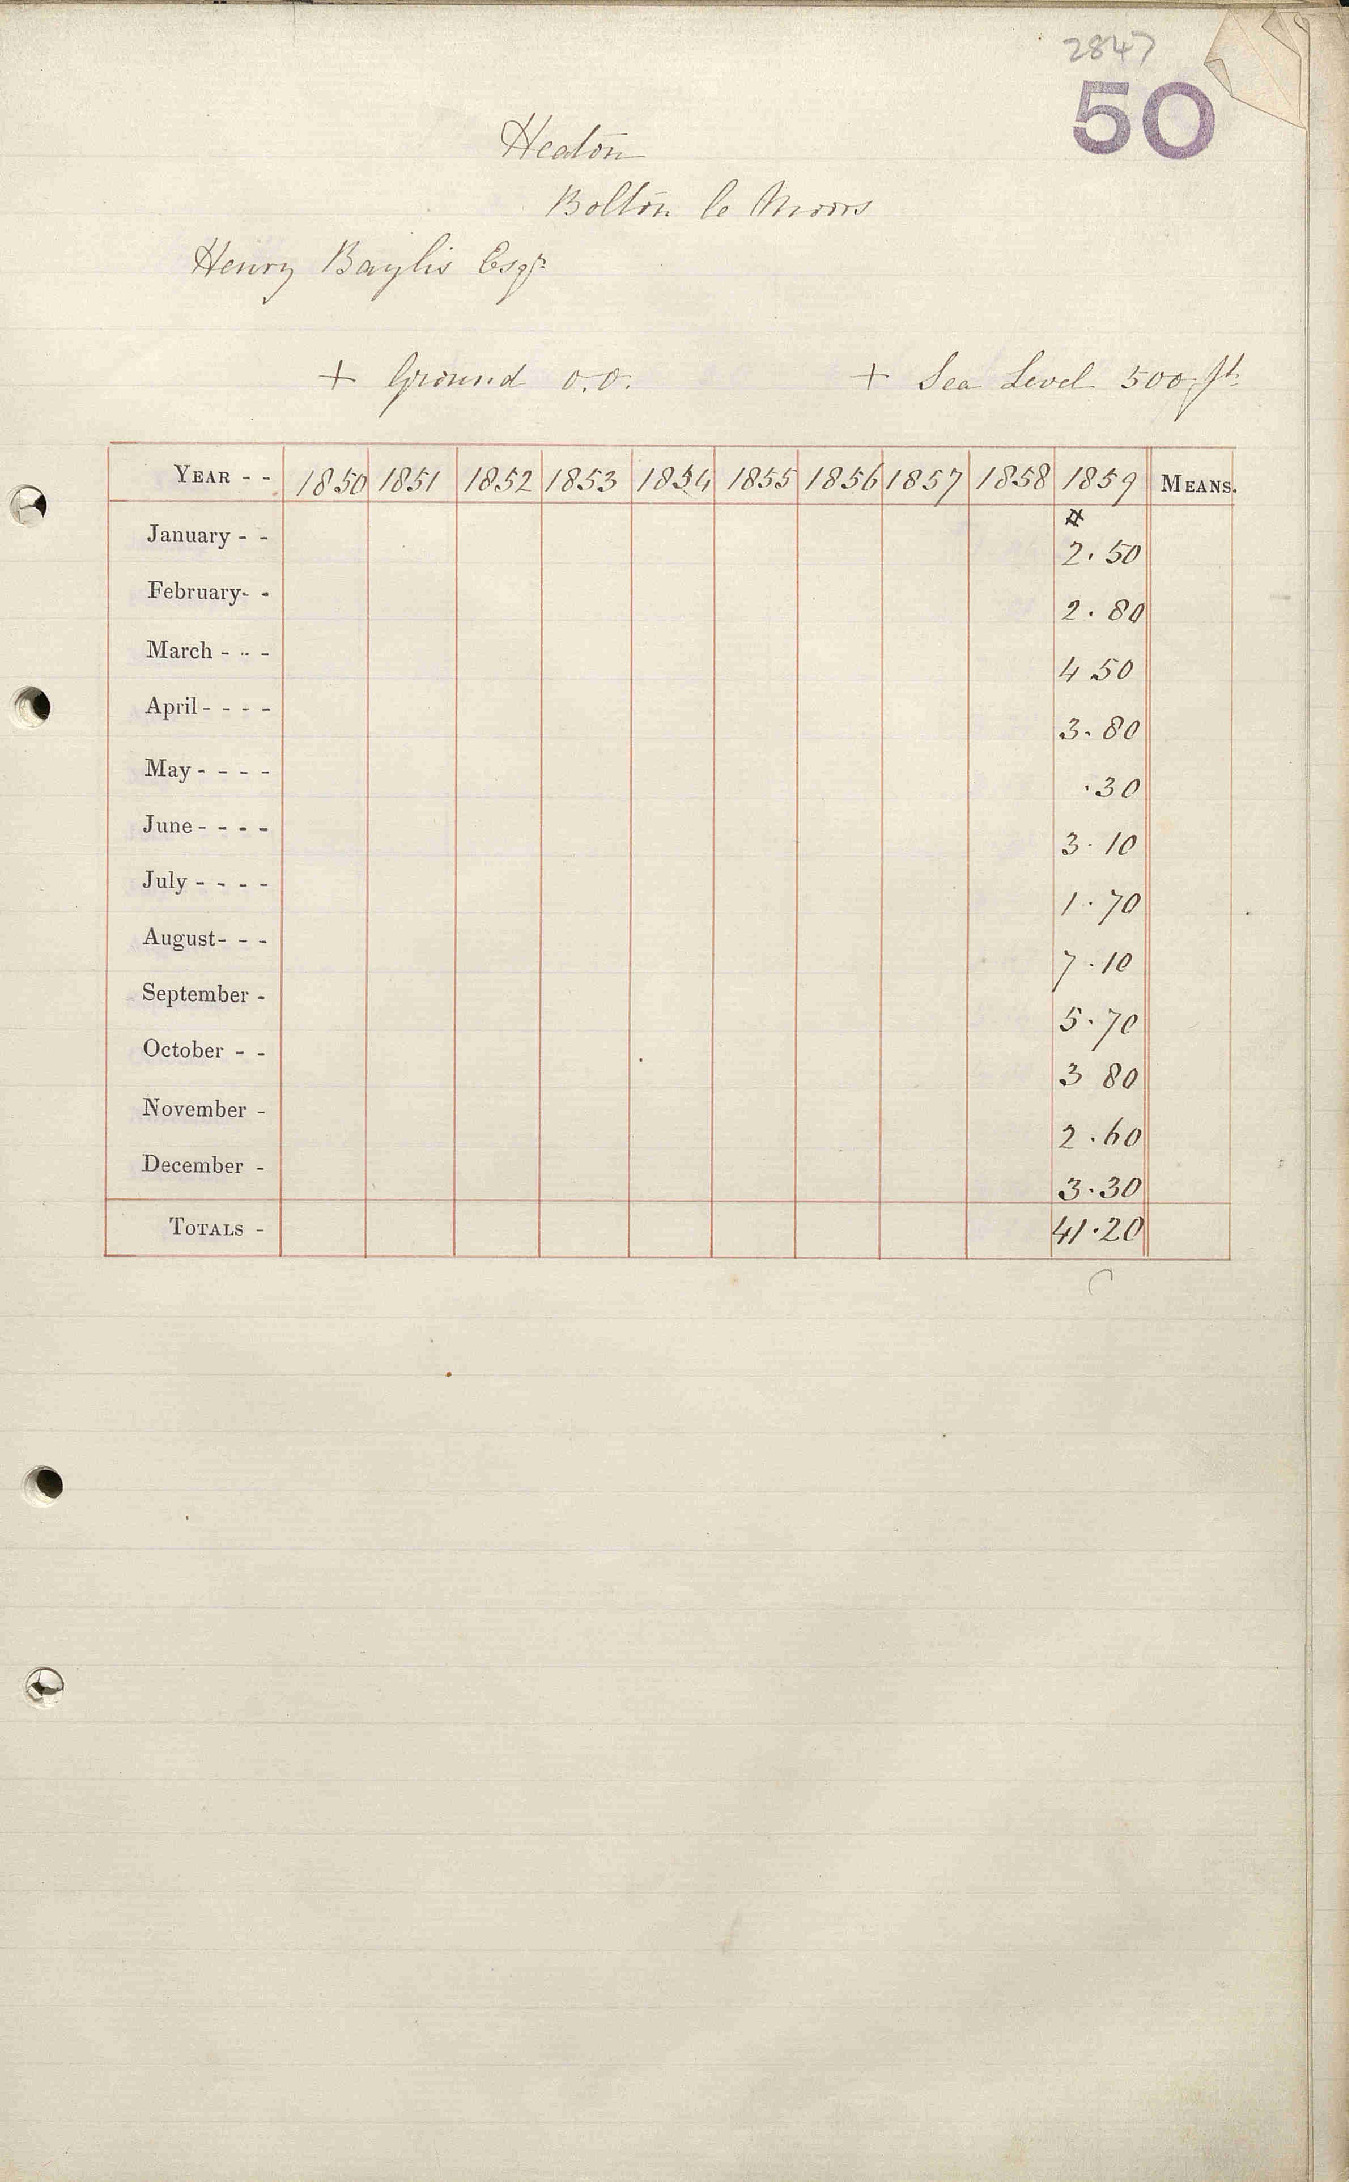 2847
50
Heaton
Bolton le Moors
Henry Baylis Esqr
+ Ground 0.0. + Sea Level 500 ft
YEAR - - 1850 1851 1852 1853 1854 1855 1856 1857 1858 1859 MEANS.
#
January - - 2.50
February- - 2.80
March - - - 4 50
April- - - - 3.80
May- - - - .30
June- - - - 3.10
July - - - - 1.70
August- - - 7.10
September - 5.70
October - - 3 80
November - 2.60
December - 3.30
TOTALS - 41.20